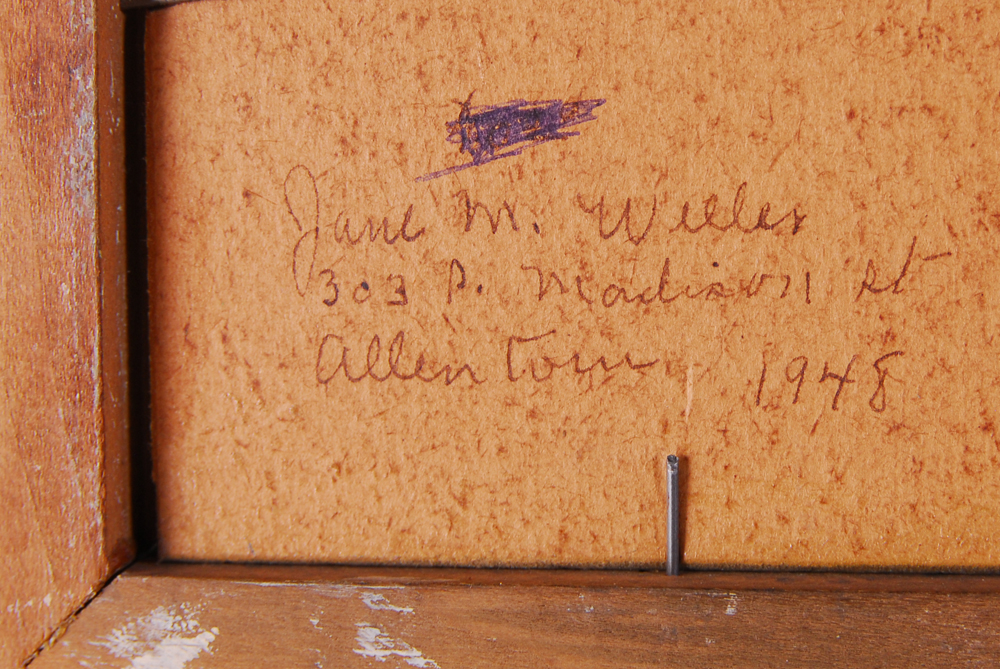 Jane M. Weller
303 P. Madison St
Allentown 1948